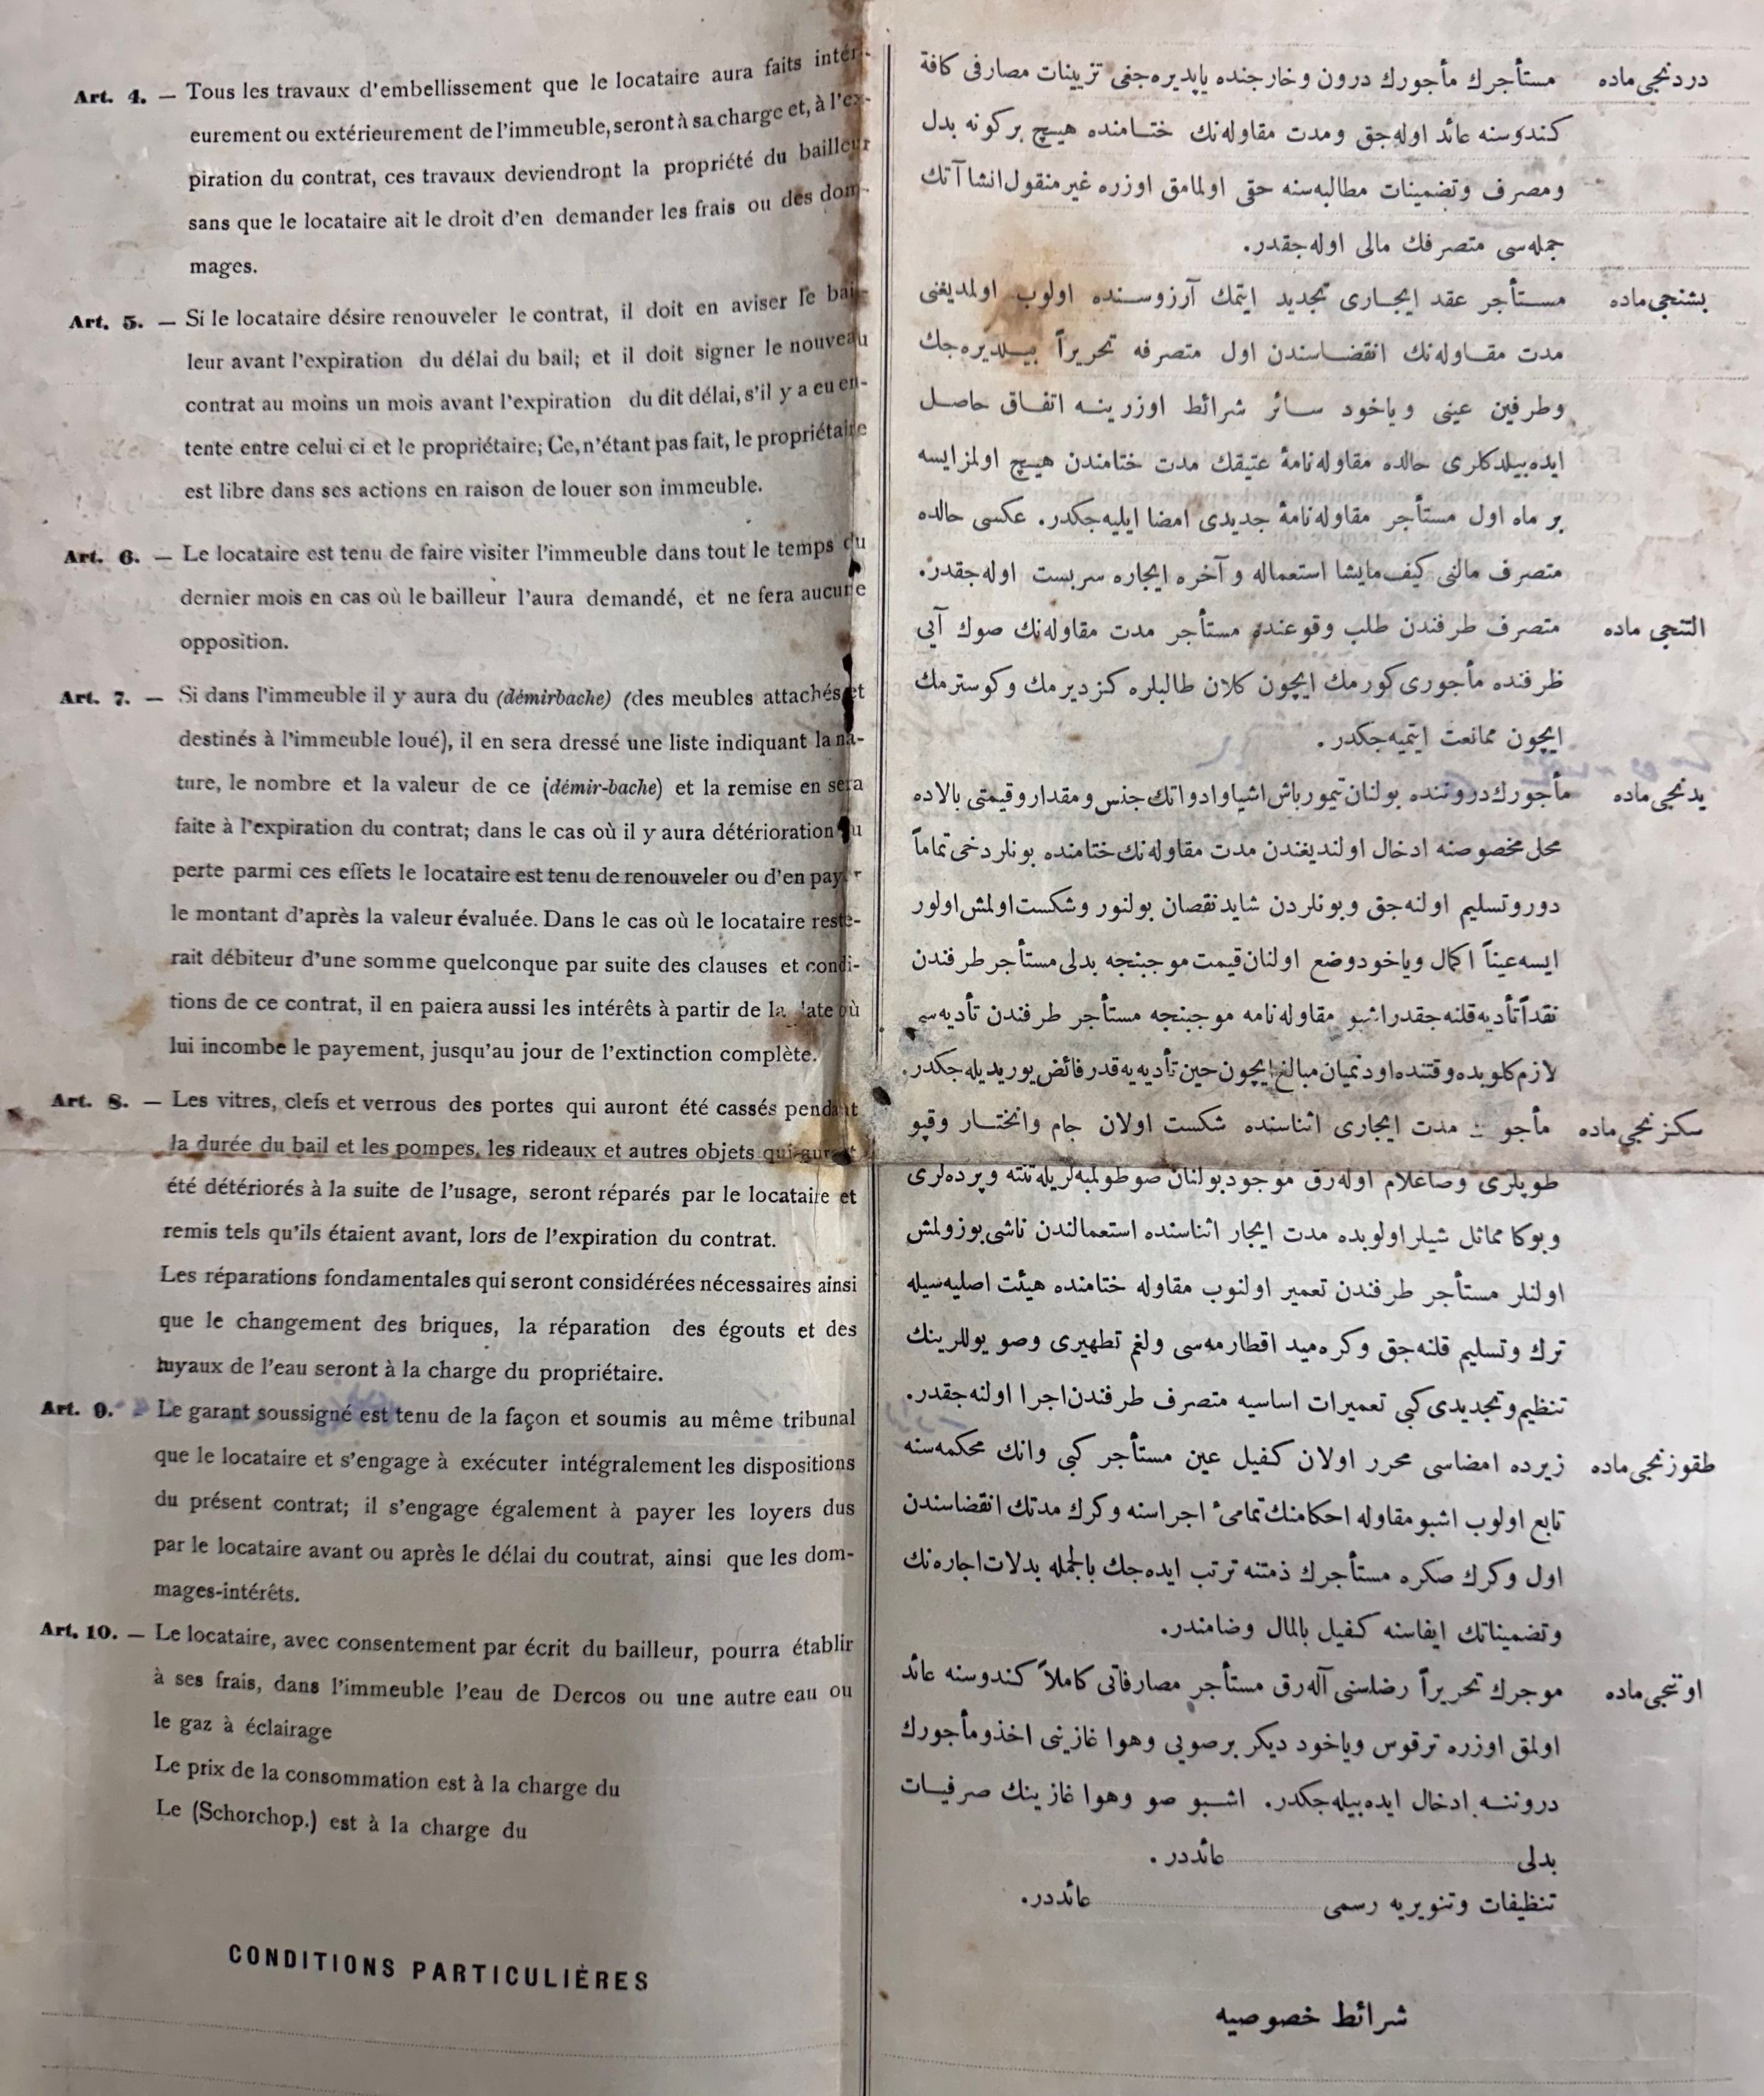 Art. 4. — Tous les travaux d'embellissement que le locataire aura faits intéri-
eurement ou extérieurement de l'immeuble, seront à sa charge et, à l'ex-
piration du contrat, ces travaux deviendront la propriété du bailleur
sans que le locataire ait le droit d'en demander les frais ou des dom-
mages.
Art. 5. — Si le locataire désire renouveler le contrat, il doit en aviser le bail-
leur avant l'expiration du délai du bail; et il doit signer le nouveau
contrat au moins un mois avant l'expiration du dit délai, s'il y a eu en-
tente entre celui ci et le propriétaire; Ce, n'étant pas fait, le propriétaire
est libre dans ses actions en raison de louer son immeuble.
Art. 6. — Le locataire est tenu de faire visiter l'immeuble dans tout le temps du
dernier mois en cas où le bailleur l'aura demandé, et ne fera aucune
opposition.
Art. 7. — Si dans l'immeuble il y aura du (démirbache) (des meubles attachés et
destinés à l'immeuble loué), il en sera dressé une liste indiquant la na-
ture, le nombre et la valeur de ce (démir-bache) et la remise en sera
faite à l'expiration du contrat; dans le cas où il y aura détérioration ou
perte parmi ces effets le locataire est tenu de renouveler ou d'en payer
le montant d'après la valeur évaluée. Dans le cas où le locataire reste-
rait débiteur d'une somme quelconque par suite des clauses et condi-
tions de ce contrat, il en paiera aussi les intérêts à partir de la date où
lui incombe le payement, jusqu'au jour de l'extinction complète.
Art. 8. — Les vitres, clefs et verrous des portes qui auront été cassés pendant
la durée du bail et les pompes, les rideaux et autres objets qui auront
été détériorés à la suite de l'usage, seront réparés par le locataire et
remis tels qu'ils étaient avant, lors de l'expiration du contrat.
Les réparations fondamentales qui seront considérées nécessaires ainsi
que le changement des briques, la réparation des égouts et des
tuyaux de l'eau seront à la charge du propriétaire.
Art. 9. - Le garant soussigné est tenu de la façon et soumis au même tribunal
que le locataire et s'engage à exécuter intégralement les dispositions
du présent contrat; il s'engage également à payer les loyers dus
par le locataire avant ou après le délai du coutrat, ainsi que les dom-
mages-intérêts.
Art. 10. — Le locataire, avec consentement par écrit du bailleur, pourra établir
à ses frais, dans l'immeuble l'eau de Dercos ou une autre eau ou
le gaz à éclairage
Le prix de la consommation est à la charge du
Le (Schorchop.) est à la charge du
CONDITIONS PARTICULIÈRES
دردنجی ماده مستأجرك مأجورك درون وخارجنده یاپدیره‌جغی تزیینات مصارفی كافة
كندوسنه عائد اوله‌جق ومدت مقاوله‌نك ختامنده هیچ بركونه بدل
ومصرف وتضمینات مطالبه‌سنه حقی اولمامق اوزره غیر منقول انشاآتك
جمله‌سی متصرفك مالی اوله‌جقدر.
بشنجی ماده مستأجر عقد ایجاری تجدید ایتمك آرزوسنده اولوب اولمدیغنی
مدت مقاوله‌نك انقضاسندن اول متصرفه تحریراً بیلدیره‌جك
وطرفین عینی ویاخود سائر شرائط اوزرینه اتفاق حاصل
ایده‌بیلدكلری حالده مقاوله‌نامهٔ عتیقك مدت ختامندن هیچ اولمز ایسه
بر ماه اول مستأجر مقاوله‌نامهٔ جدیدی امضا ایلیه‌جكدر. عكسی حالده
متصرف مالنی كیف‌مایشا استعماله و آخره ایجاره سربست اوله‌جقدر.
التنجی ماده متصرف طرفندن طلب وقوعنده مستأجر مدت مقاوله‌نك صوك آیی
ظرفنده مأجوری كورمك ایچون كلان طالبلره كزدیرمك وكوسترمك
ایچون ممانعت ایتمیه‌جكدر.
یدنجی ماده مأجورك دروننده بولنان تیمورباش اشیا وادواتك جنس ومقدار وقیمتی بالاده
محل مخصوصنه ادخال اولندیغندن مدت مقاوله‌نك ختامنده بونلر دخی تماماً
دور وتسلیم اولنه‌جق وبونلردن شاید نقصان بولنور وشكست اولمش اولور
ایسه عیناً اكمال ویاخود وضع اولنان قیمت موجبنجه بدلی مستأجر طرفندن
نقداً تأدیه قلنه‌جقدر اشبو مقاوله‌نامه موجبنجه مستأجر طرفندن تأدیه‌سی
لازم كلوبده وقتنده اودنمیان مبالغ ایچون حین تأدیه‌یه قدر فائض یوریدیله‌جكدر.
سكزنجی ماده مدت ایجاری اثناسنده شكست اولان جام وانختار وقپو
طوپلری وصاغلام اوله‌رق موجود بولنان صو طولمبه‌لریله تنته وپرده‌لری
وبوكا مماثل شیلر اولوبده مدت ایجار اثناسنده استعمالندن ناشی بوزولمش
اولنلر مستأجر طرفندن تعمیر اولنوب مقاوله ختامنده هیئت اصلیه‌سیله
ترك وتسلیم قلنه‌جق وكره‌مید اقطارمه‌سی ولغم تطهیری وصو یوللرینك
تنظیم وتجدیدی كبی تعمیرات اساسیه متصرف طرفندن اجرا اولنه‌جقدر.
طقوزنجی ماده زیرده امضاسی محرر اولان كفیل عین مستأجر كبی وانك محكمه‌سنه
تابع اولوب اشبو مقاوله احكامنك تمامیٔ اجراسنه وكرك مدتك انقضاسندن
اول وكرك صكره مستأجرك ذمتنه ترتب ایده‌جك بالجمله بدلات اجاره‌نك
وتضمیناتك ایفاسنه كفیل بالمال وضامندر.
اوننجی ماده موجرك تحریراً رضاسنی آله‌رق مستأجر مصارفاتی كاملاً كندوسنه عائد
اولمق اوزره ترقوس ویاخود دیكر بر صویی وهوا غازینی اخذ ومأجورك
دروننه ادخال ایده‌بیله‌جكدر. اشبو صو وهوا غازینك صرفیات
بدلی عائددر.
تنظیفات وتنویریه رسمی عائددر.
شرائط خصوصیه